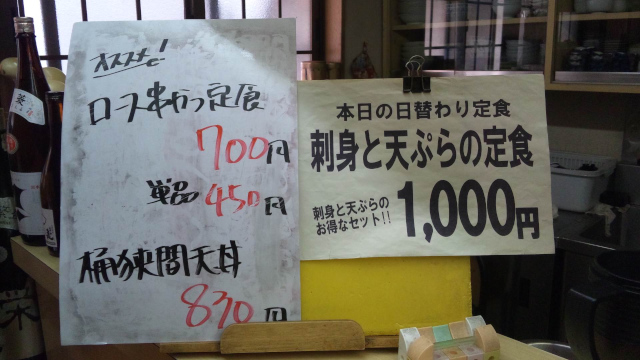 オススメ!
ロース串かつ定食
700円
単品 450円
桶狭間天丼
830円
本日の日替わり定食
刺身と天ぷらの定食
刺身と天ぷらの
お得なセット!!
1,000円